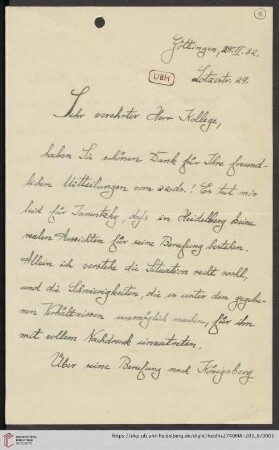 6
Göttingen, 28. VI. 32.
Lotzestr. 29.
UBH
Sehr verehrter Herr Kollege,
haben Sie schönen Dank für Ihre freund-
lichen Mitteilungen vom 22. ds.! Es tut mir
leid für Janentzky, dass in Heidelberg keine
realen Aussichten für seine Berufung bestehen.
Allein ich verstehe die Situation recht wohl,
und die Schwierigkeiten, die es unter den gegebe-
nen Verhältnissen unmöglich machen, für ihn
mit vollem Nachdruck einzutreten.
Über seine Berufung nach Königsberg
UNIVERSITÄTS-
BIBLIOTHEK
HEIDELBERG
https://digi.ub.uni-heidelberg.de/diglit/heidhs2740IIIA-203_6/0001